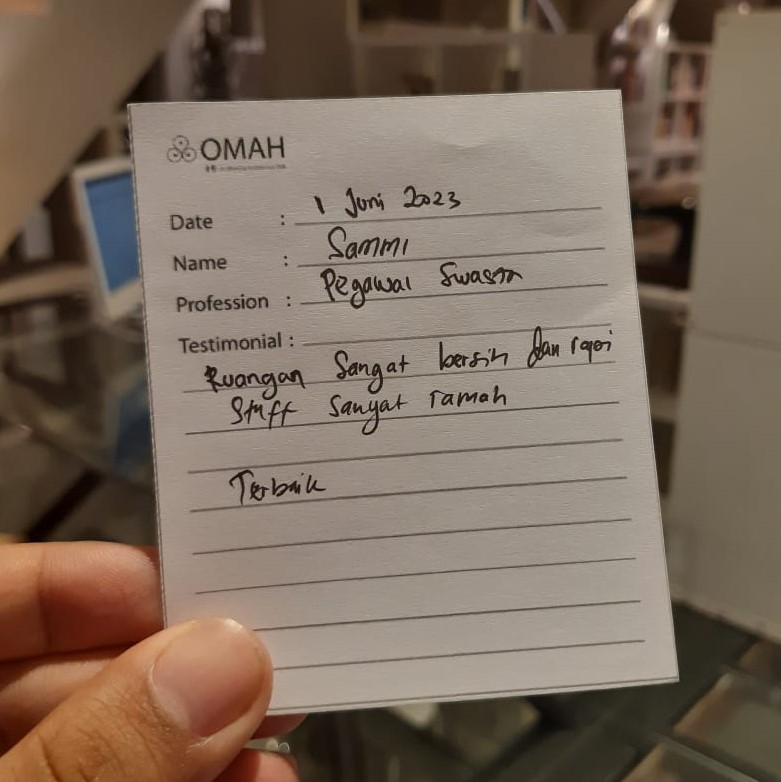 OMAH
Date : 1 Juni 2023
Name : Sammi
Profession : Pegawai Swasta
Testimonial :
Ruangan Sangat bersih dan rapi
Staff Sangat ramah
Terbaik